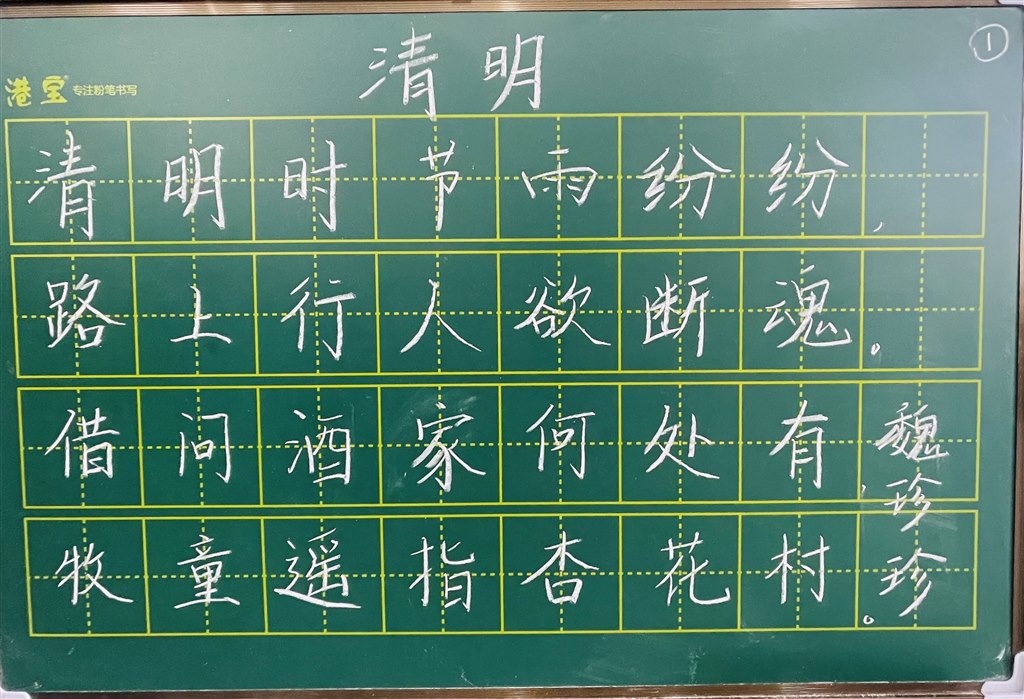 清明
①
港宝® 专注粉笔书写
清明时节雨纷纷，
路上行人欲断魂。
借问酒家何处有，
牧童遥指杏花村。
魏珍珍